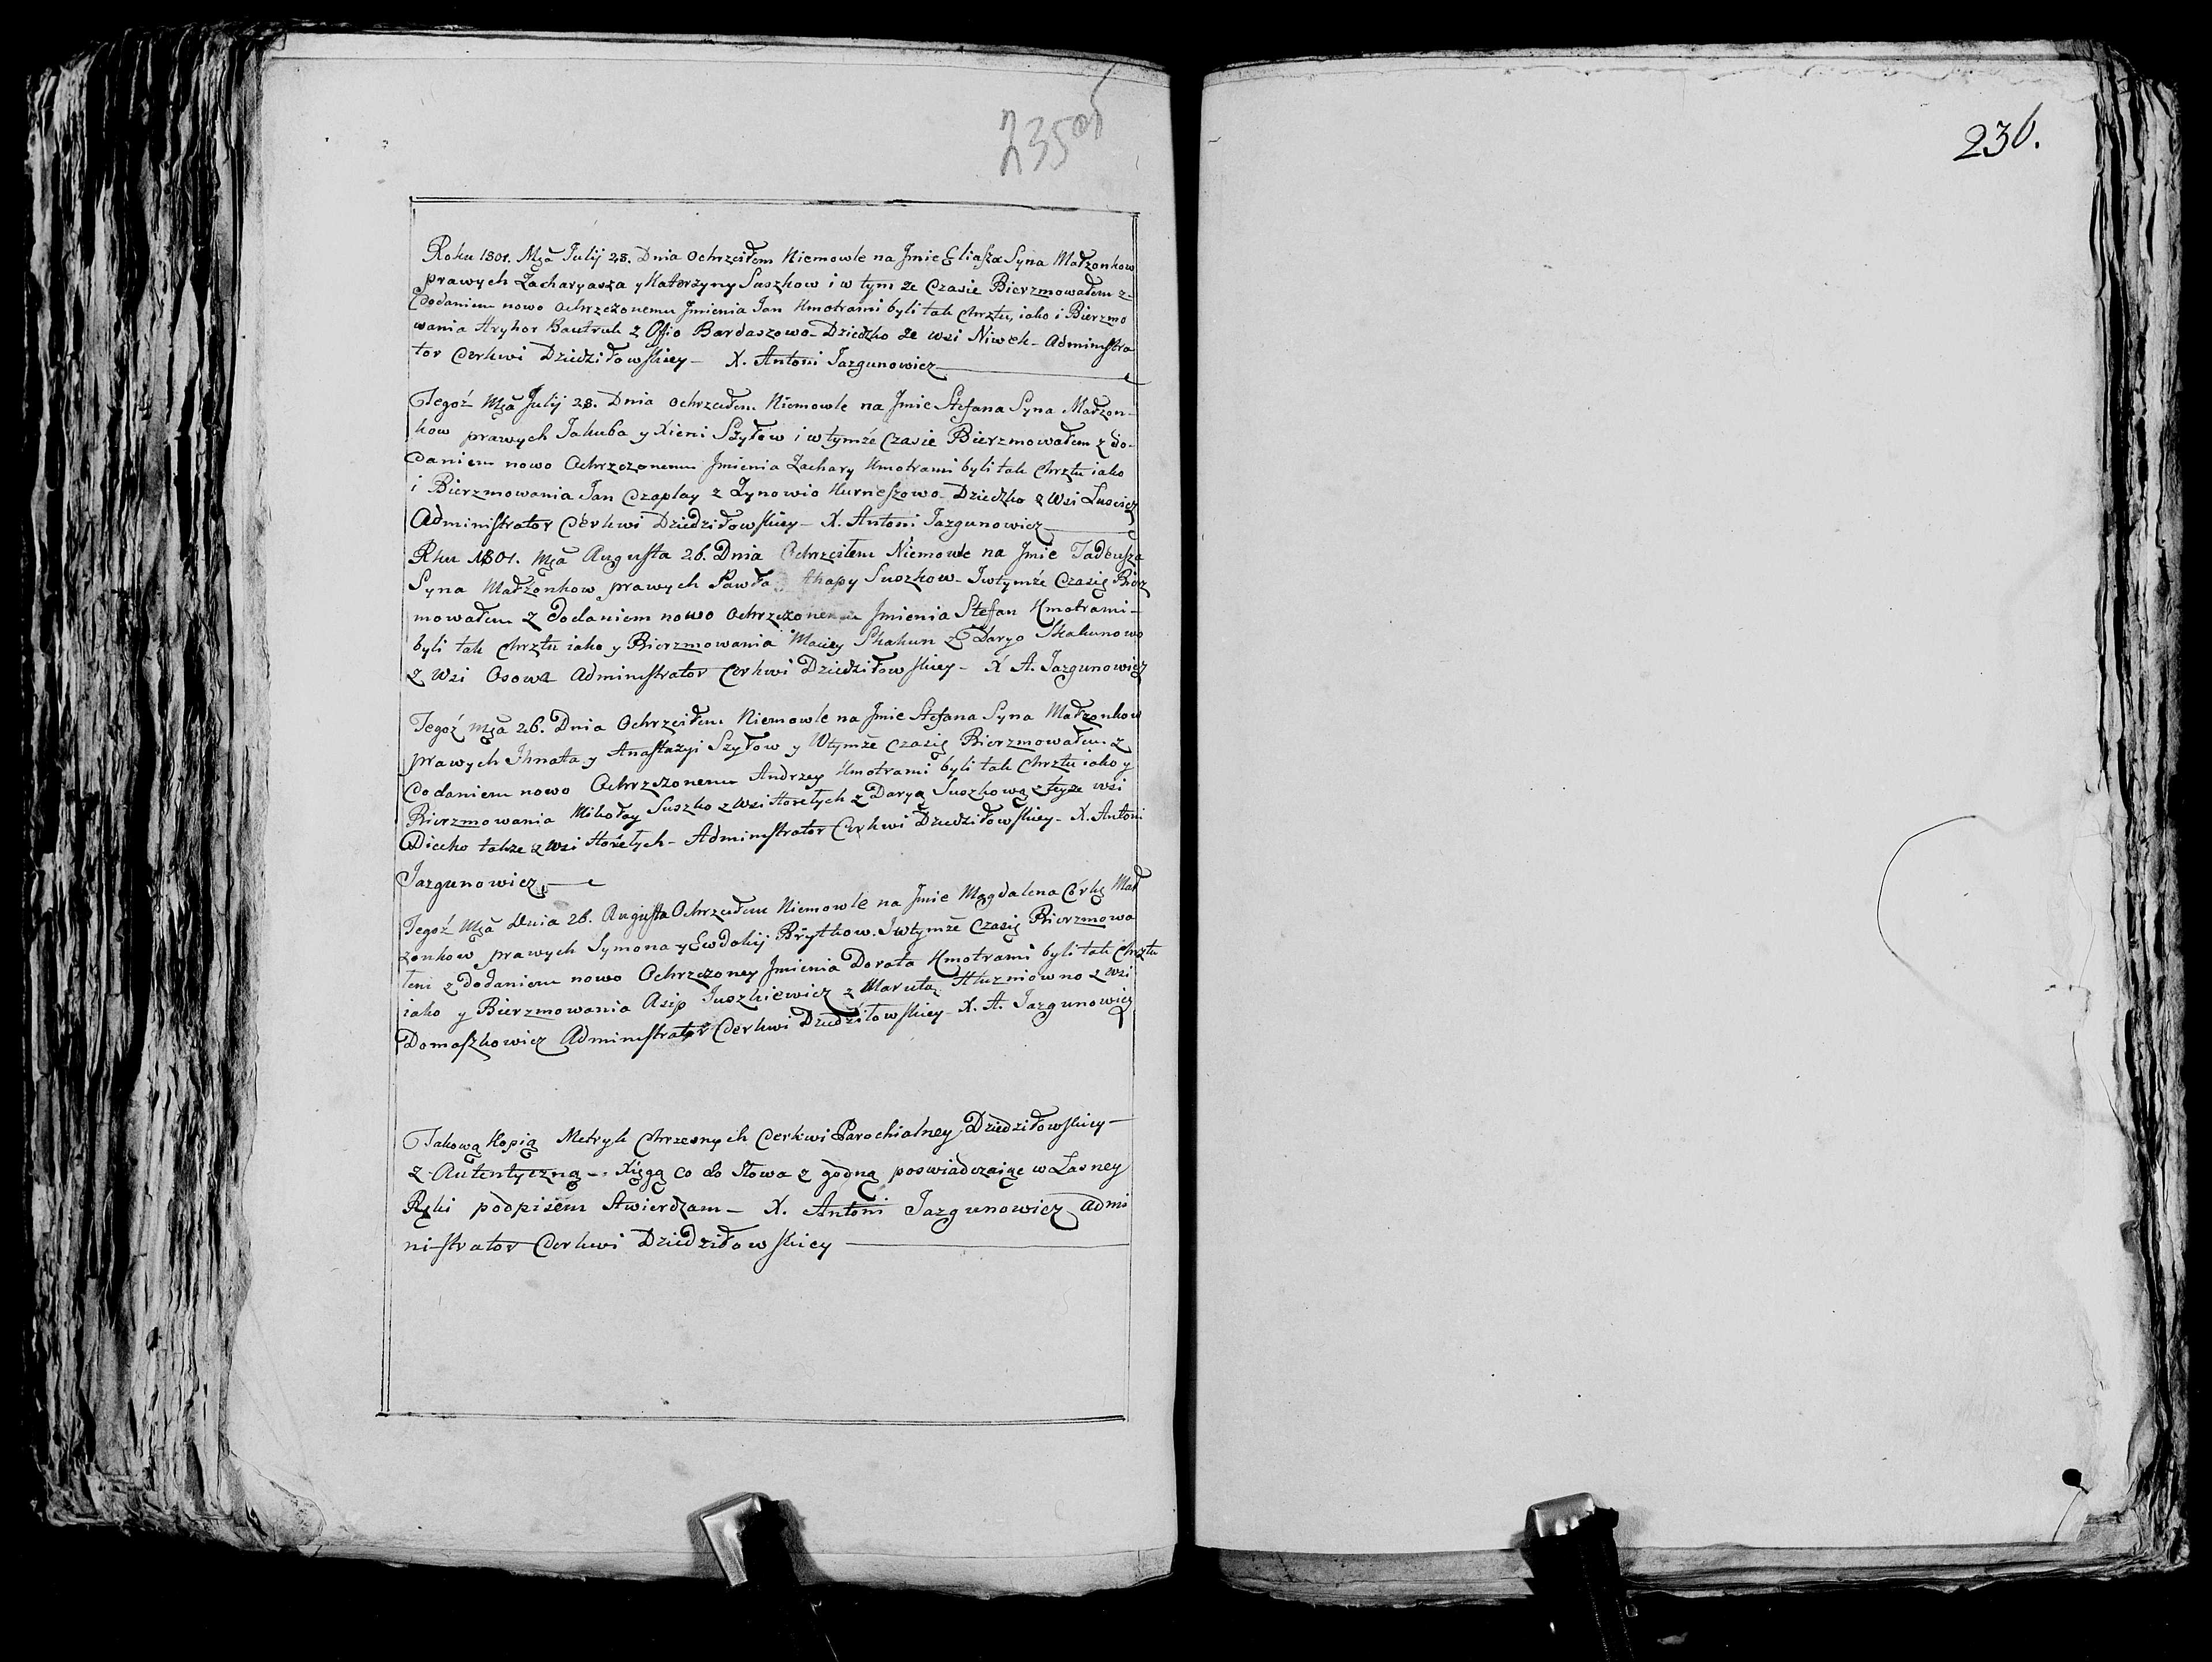 235об
236.
Roku 1801. Mςa Julij 28. Dnia Ochrzciłem Niemowle na Jmie Eliasza Syna Małzonkow
prawych Zacharyasza y Katerzyny Suszkow i w tym ze Czasie Bierzmowałem z
dodaniem nowo Ochrzczonemu Jmienia Jan Kmotrami byli tak Chrztu, iako i Bierzmo
wania Hryhor Bautruk z Offio Bardaszowo Dziedzko ze wsi Niwek - Administra
tor Cerkwi Dziedziłowskiey - X. Antoni Jazgunowicz
Tegoż Mςa Julij 28. Dnia Ochrzciłem Niemowle na Jmie Stefana Syna Małzon-
kow prawych Jakuba y Xieni Szyłow i w tymże Czasie Bierzmowałem z do-
daniem nowo Ochrzczonemu Jmienia Zachary Kmotrami byli tak Chrztu iako
i Bierzmowania Jan Czaplay z Zynowio Kurneszowo Dziedzko z Wsi
Administrator Cerkwi Dziedziłowskiey - X. Antoni Jazgunowicz
Rku 1801. Mςa Augusta 26. Dnia Ochrzciłem Niemowle na Jmie Tadeusza
Syna Małżonkow prawych Pawła Ahapy Suszkow - Jwtymże Czasię Bierz
mowałem z dodaniem nowo Ochrzczonemu Jmienia Steffan Kmotrami -
byli tak Chrztu iako y Bierzmowania Maciey Skakun z Daryo Skakunowo
z Wsi Osowa Administrator Cerkwi Dziedziłowskiey - X A. Jazgunowicz
Tegoż Mςa 26. Dnia Ochrzciłem Niemowle na Jmie Stefana Syna Małzonkow
prawych Jhnata y Anastazyi Szyłow y Wtymże Czasię Bierzmowałem z
dodaniem nowo Ochrzszonemu Andrzey Kmotrami byli tak Chrztu iako y
Bierzmowania Mikołay Suszko z Wsi Horełych z Daryą Suszkową z teyze wsi
takze z Wsi Horełych - Administrator Cerkwi Dziedziłowskiey - X. Antoni
Jazgunowicz
Tegoż Mςa Dnia 26. Augusta Ochrzciłem Niemowle na Jmie Magdalena Córkę Mał
zonkow prawych Symona y Ewdokij Brytkow. Jwtymże Czasię Bierzmowa
łem z dodaniem nowo Ochrzczoney Jmienia Dorata Kmotrami byli tak Chrztu
iako y Bierzmowania Asip Juszkiewicz z Marutą Hluzniowno z wsi
Domaszkowicz Administrator Cerkwi Dziedziłowskiey - X. A. Jazgunowicz
Takową Kopią Metryk Chrzesnych Cerkwi Parochialney Dziedziłowskiey -
z Autentyczną - Xięgą co do Słowa z godną poswiadczaiąc w Łasney
Ręki podpisem Stwierdzam - X. Antoni Jazgunowicz Admi
nistrator Cerkwi Dziedziłowskiey